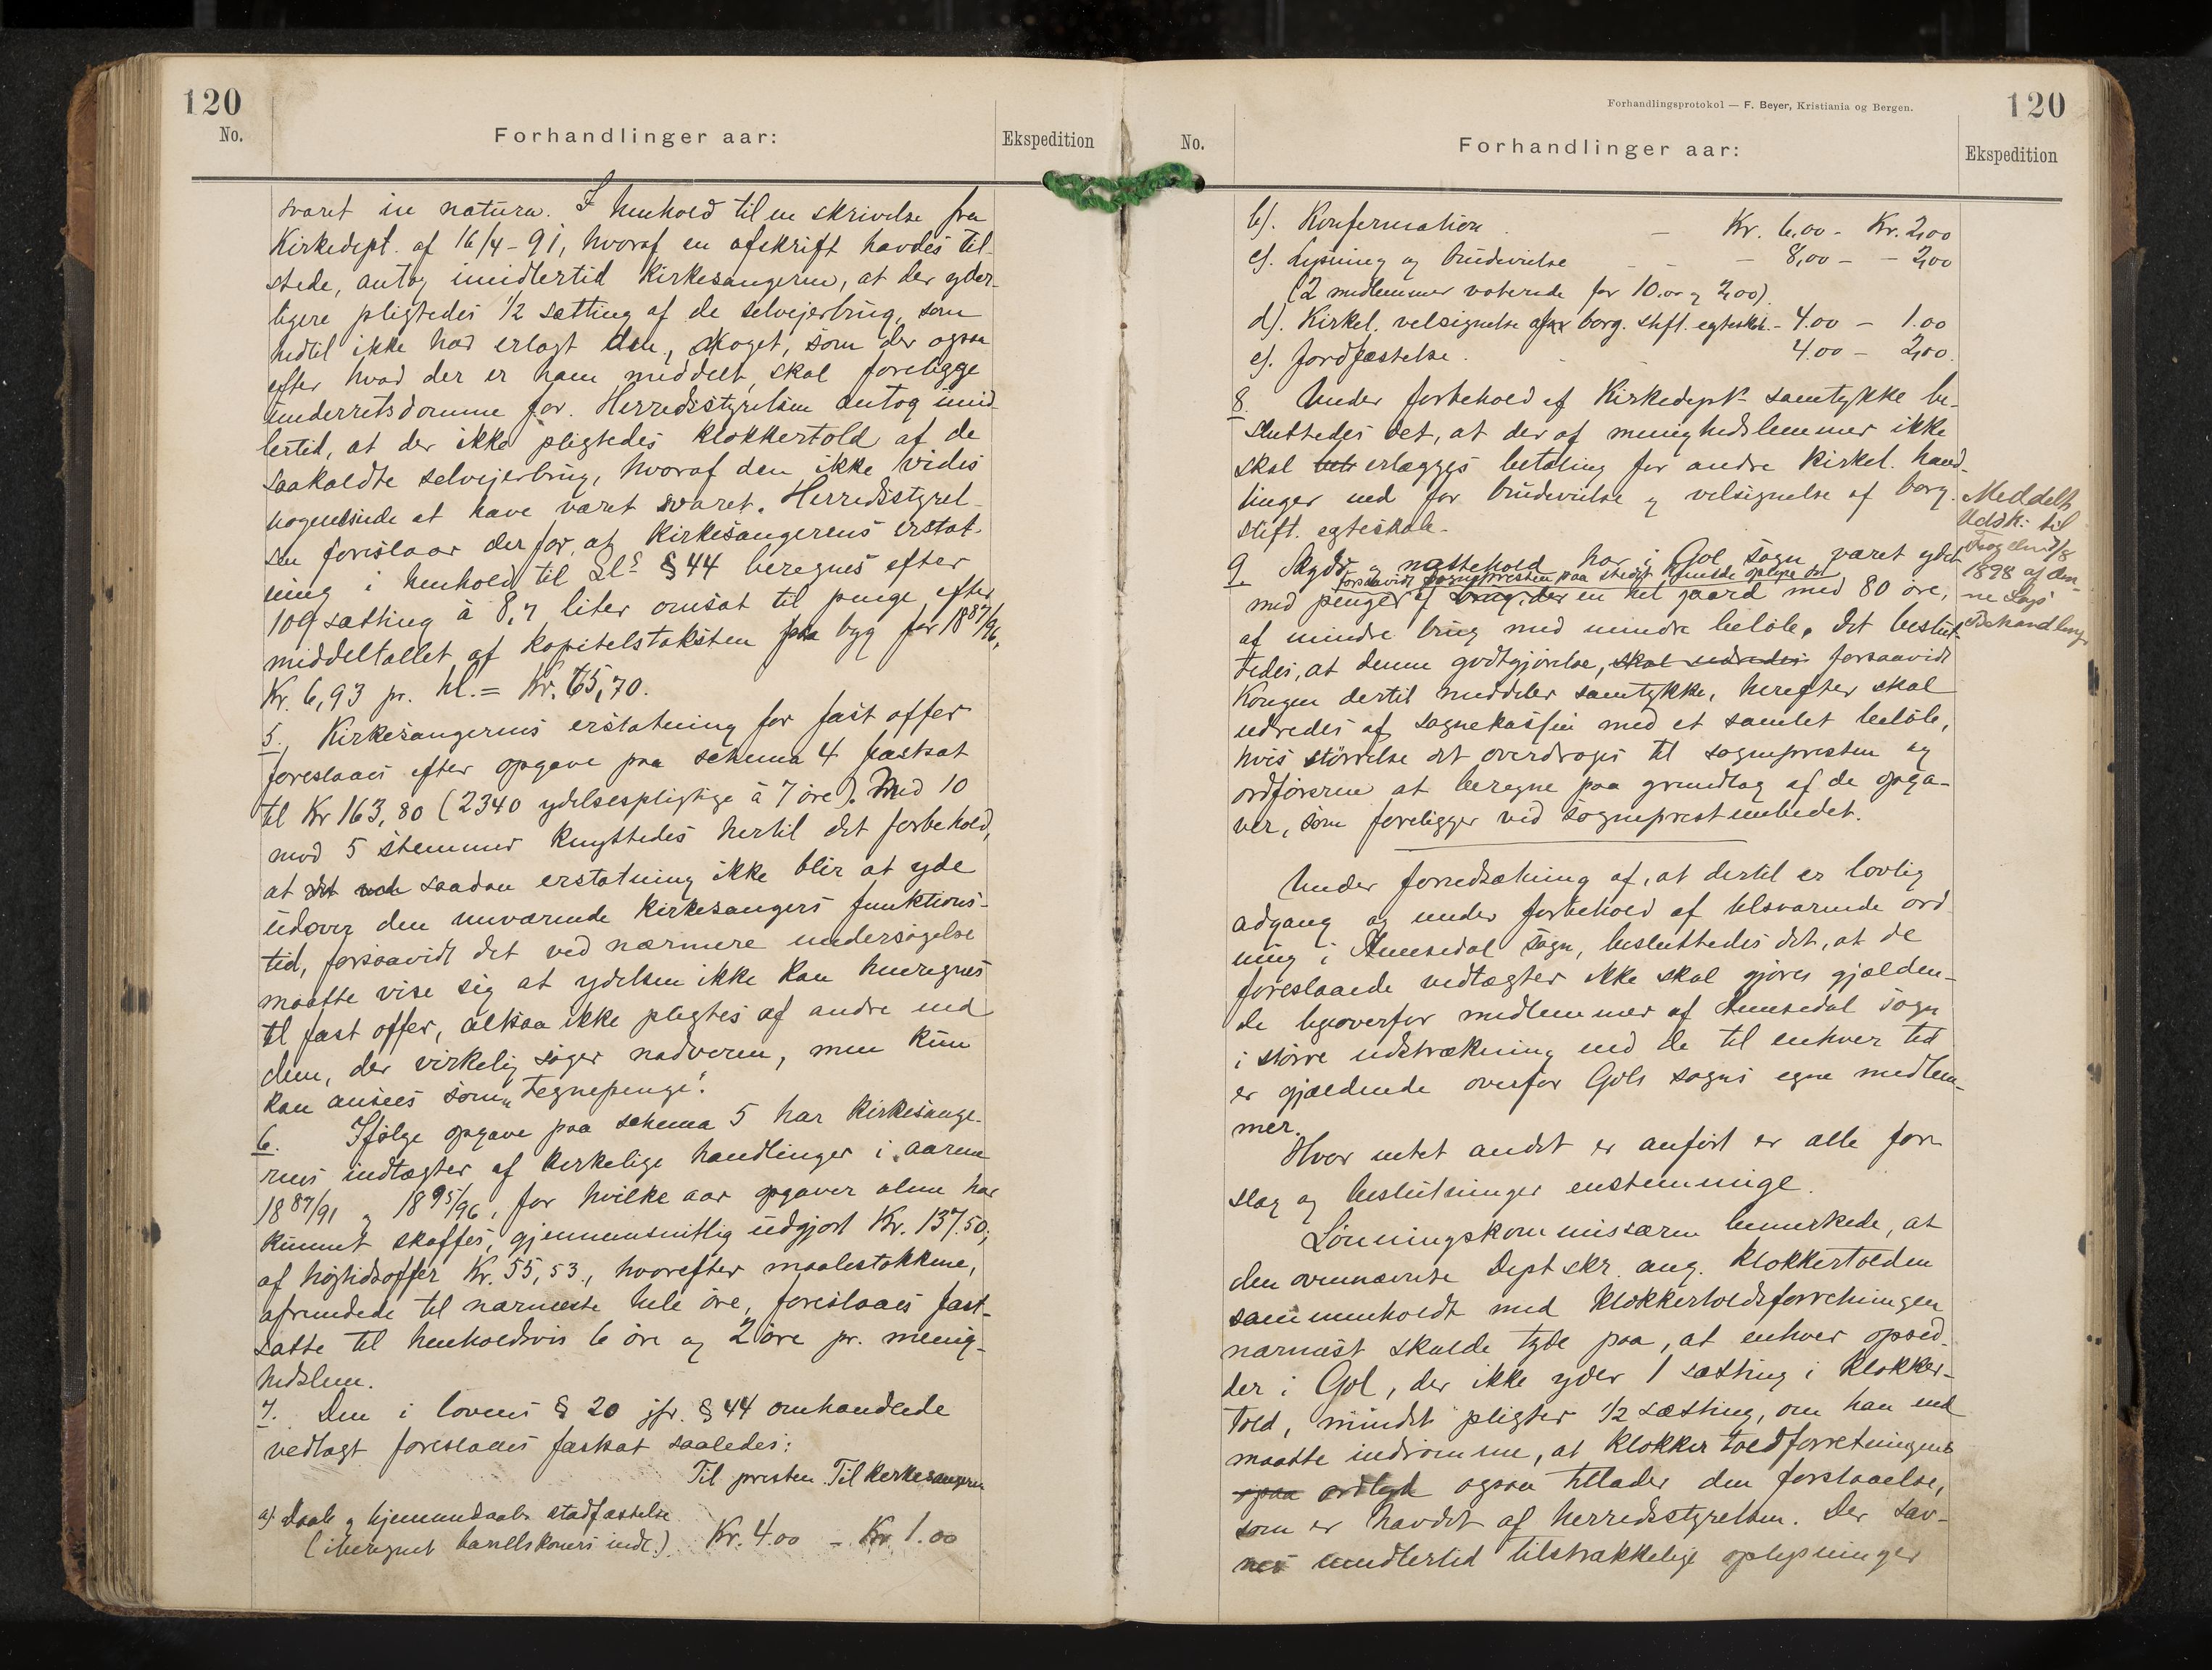 120
No.
Forhandlinger aar:
Ekspedition
svaret in natura. I henhold til en skrivelse fra
Kirkedept. af 16/4-91, hvoraf en afskrift havdes til-
stede, antog imidlertid kirkesangeren, at der yder-
ligere pligtedes 1/2 sætting af de selveierbrug, som
hidtil ikke har erlagt den, noget, som der ogsaa
efter hvad der er ham meddelt, skal foreligge
underretsdomme for. Herredsstyrelsen antog imid-
lertid, at der ikke pligtedes klokkertold af de
saakaldte selvejerbrug, hvoraf den ikke vides
nogensinde at have været svaret. Herredsstyrel-
sen foreslaar derfor, at kirkesangerens erstat-
ning i henhold til Ll.s § 44 beregnes efter
109 sætting à 8,7 liter omsat til penge efter
middeltallet af kapitelstaksten paa byg for 1887/96,
Kr. 6,93 pr. hl. = Kr. 65,70.
5. Kirkesangerens erstatning for fast offer
foreslaaes efter opgave paa schema 4 fastsat
til Kr 163,80 (2340 ydelsespligtige à 7 øre). Med 10
mod 5 stemmer knyttedes hertil det forbehold,
at saadan erstatning ikke blir at yde
udover den nuværende kirkesangers funktions-
tid, forsaavidt det ved nærmere undersøgelse
maatte vise sig at ydelsen ikke kan henregnes
til fast offer, altsaa ikke pligtes af andre end
dem, der virkelig søger nadveren, men kun
kan ansees som „tegnepenge".
6. Ifølge opgave paa schema 5 har kirkesange-
rens indtægter af kirkelige handlinger i aarene
1887/91 og 1895/96, for hvilke aar opgaver alene har
kunnet skaffes, gjennemsnitlig udgjort Kr. 137.50;
af høitidsoffer Kr. 55,53., hvorefter maalestokkene,
afrundede til nærmeste hele øre, foreslaaes fast-
satte til henholdsvis 6 øre og 2 øre pr. menig-
hedslem.
7. Den i lovens § 20 jfr. § 44 omhandlede
vedtagt foreslaaes fastsat saaledes:
Til presten. Til kirkesangeren
a). Daab og hjemmedaabs stadfæstelse
(iberegnet barselkoners indl.) Kr. 4.00 - Kr 1.00
Forhandlingsprotokol — F. Beyer, Kristiania og Bergen.
120
No.
Forhandlinger aar:
Ekspedition
b). Konfirmation - Kr. 6,00 - Kr. 2,00
c). Lysning og brudevielse - - - 8,00 - - 2,00
(2 medlemmer voterede for 10.00 og 2,00).
d). Kirkel. velsignelse af borg. stift. egteskab. - 4.00 - 1.00
e). Jordfæstelse. 4.00 - 2,00.
8. Under forbehold af Kirkedept.s samtykke be-
sluttedes det, at der af menighedslemmer ikke
skal erlægges betaling for andre kirkel. hand-
linger end for brudevielse og velsignelse af borg.
stift. egteskab.
9. Skyds og nattehold har i Gol sogn været ydet
forsaavidt sognepresten paa stedet kunde oplyse det
med penger af en hel gaard med 80 øre,
af mindre brug med mindre beløb. Det beslut-
tedes, at denne godtgjørelse, skal udredes forsaavidt
Kongen dertil meddeler samtykke, herefter skal
udredes af sognekassen med et samlet beløb,
hvis størrelse det overdrages til sognepresten og
ordføreren at beregne paa grundlag af de opga-
ver, som foreligger ved sogneprestembedet.
Meddelt
Udsk. til
Fogden
1898 af den-
ne Sags
Behandling
Under forudsætning af, at dertil er lovlig
adgang og under forbehold af tilsvarende ord-
ning i Hemsedal sogn, besluttedes det, at de
foreslaaede vedtægter ikke skal gjøres gjælden-
de ligeoverfor medlemmer af Hemsedal sogn
i større udstrækning end de til enhver tid
er gjældende overfor Gols sogns egne medlem-
mer.
Hvor intet andet er anført er alle for-
slag og beslutninger enstemmige.
Lønningskommissæren bemerkede, at
den ovennævnte Dept skr. ang. klokkertolden
sammenholdt med klokkertoldsforretningen
nærmest skulde tyde paa, at enhver opsid-
der i Gol, der ikke yder 1 sætting i klokker-
told, mindst pligter 1/2 sætting, om han end
maatte indrømme, at klokkertoldforretningens
ordlyd ogsaa tillader den forstaaelse,
som er hævdet af herredsstyrelsen. Der sav-
nes imidlertid tilstrækkelige oplysninger